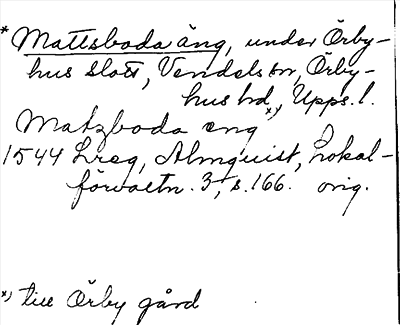 * Mattsboda äng, under Örby-
hus slott, Vendels sn, Örby-
hus hd, x) Upps. l.
Matzboda eng
1544 Lreg, Almquist, Lokal-
förvaltn. 3, s. 166. orig.
x) till Örby gård